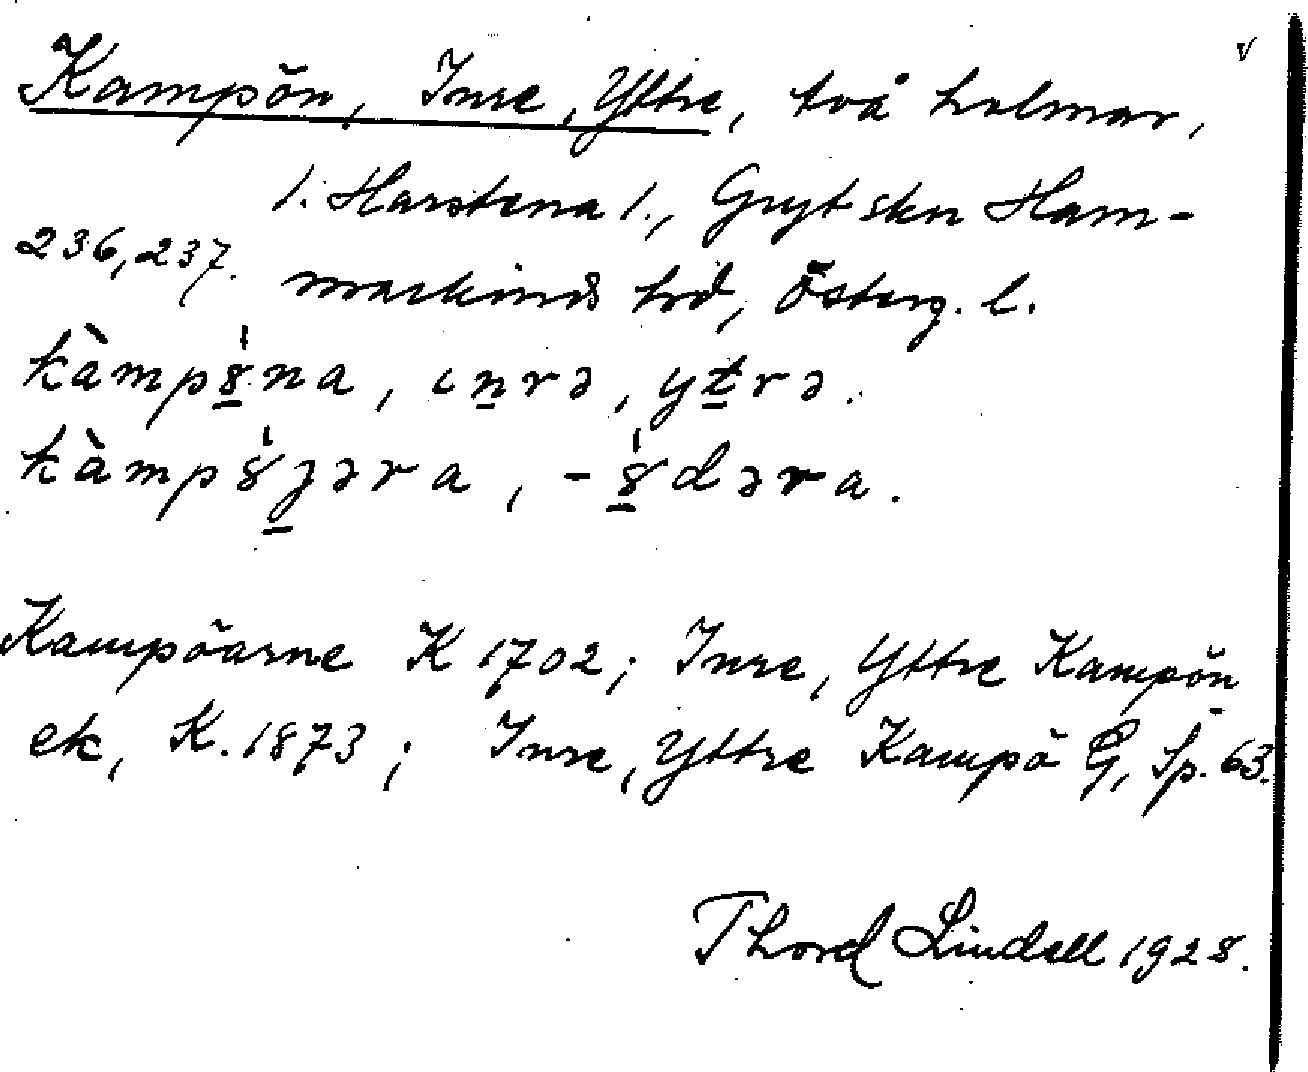 v
Kampön, Inre, Yttre, två holmar,
l. Harstena l., Gryt skn Ham-
236, 237. markinds hrd, Österg. l.
kàmpı̣8̠́na, ιn̠rə, yt̠rə.
kàmp8́ȷ̠əra, -8̠́dəra.
Kampöarne K 1702; Inre, Yttre Kampön
ek, K. 1873; Inre, Yttre Kampö G, Sp. 63.
Thord Lindell 1928.